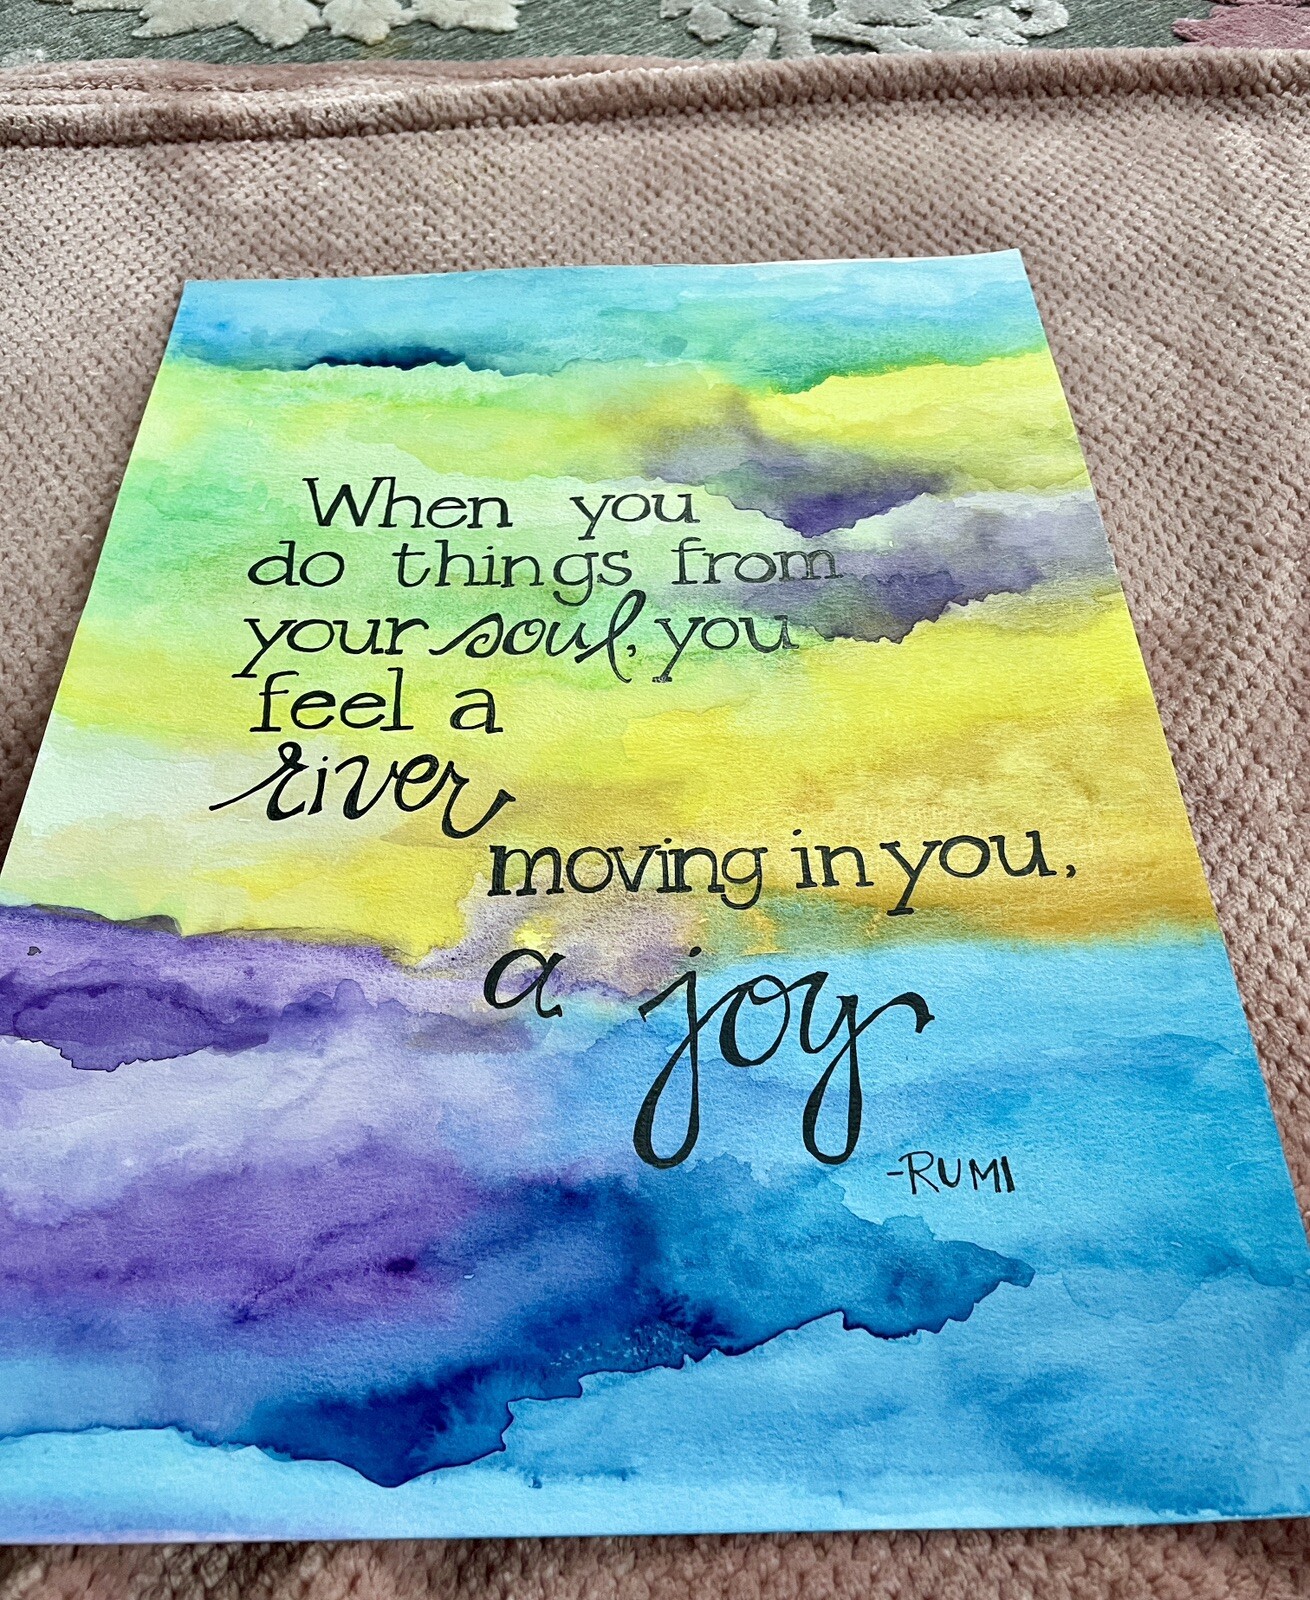 When you
do things from
your soul, you
feel a
river
moving in you,
a joy
-RUMI